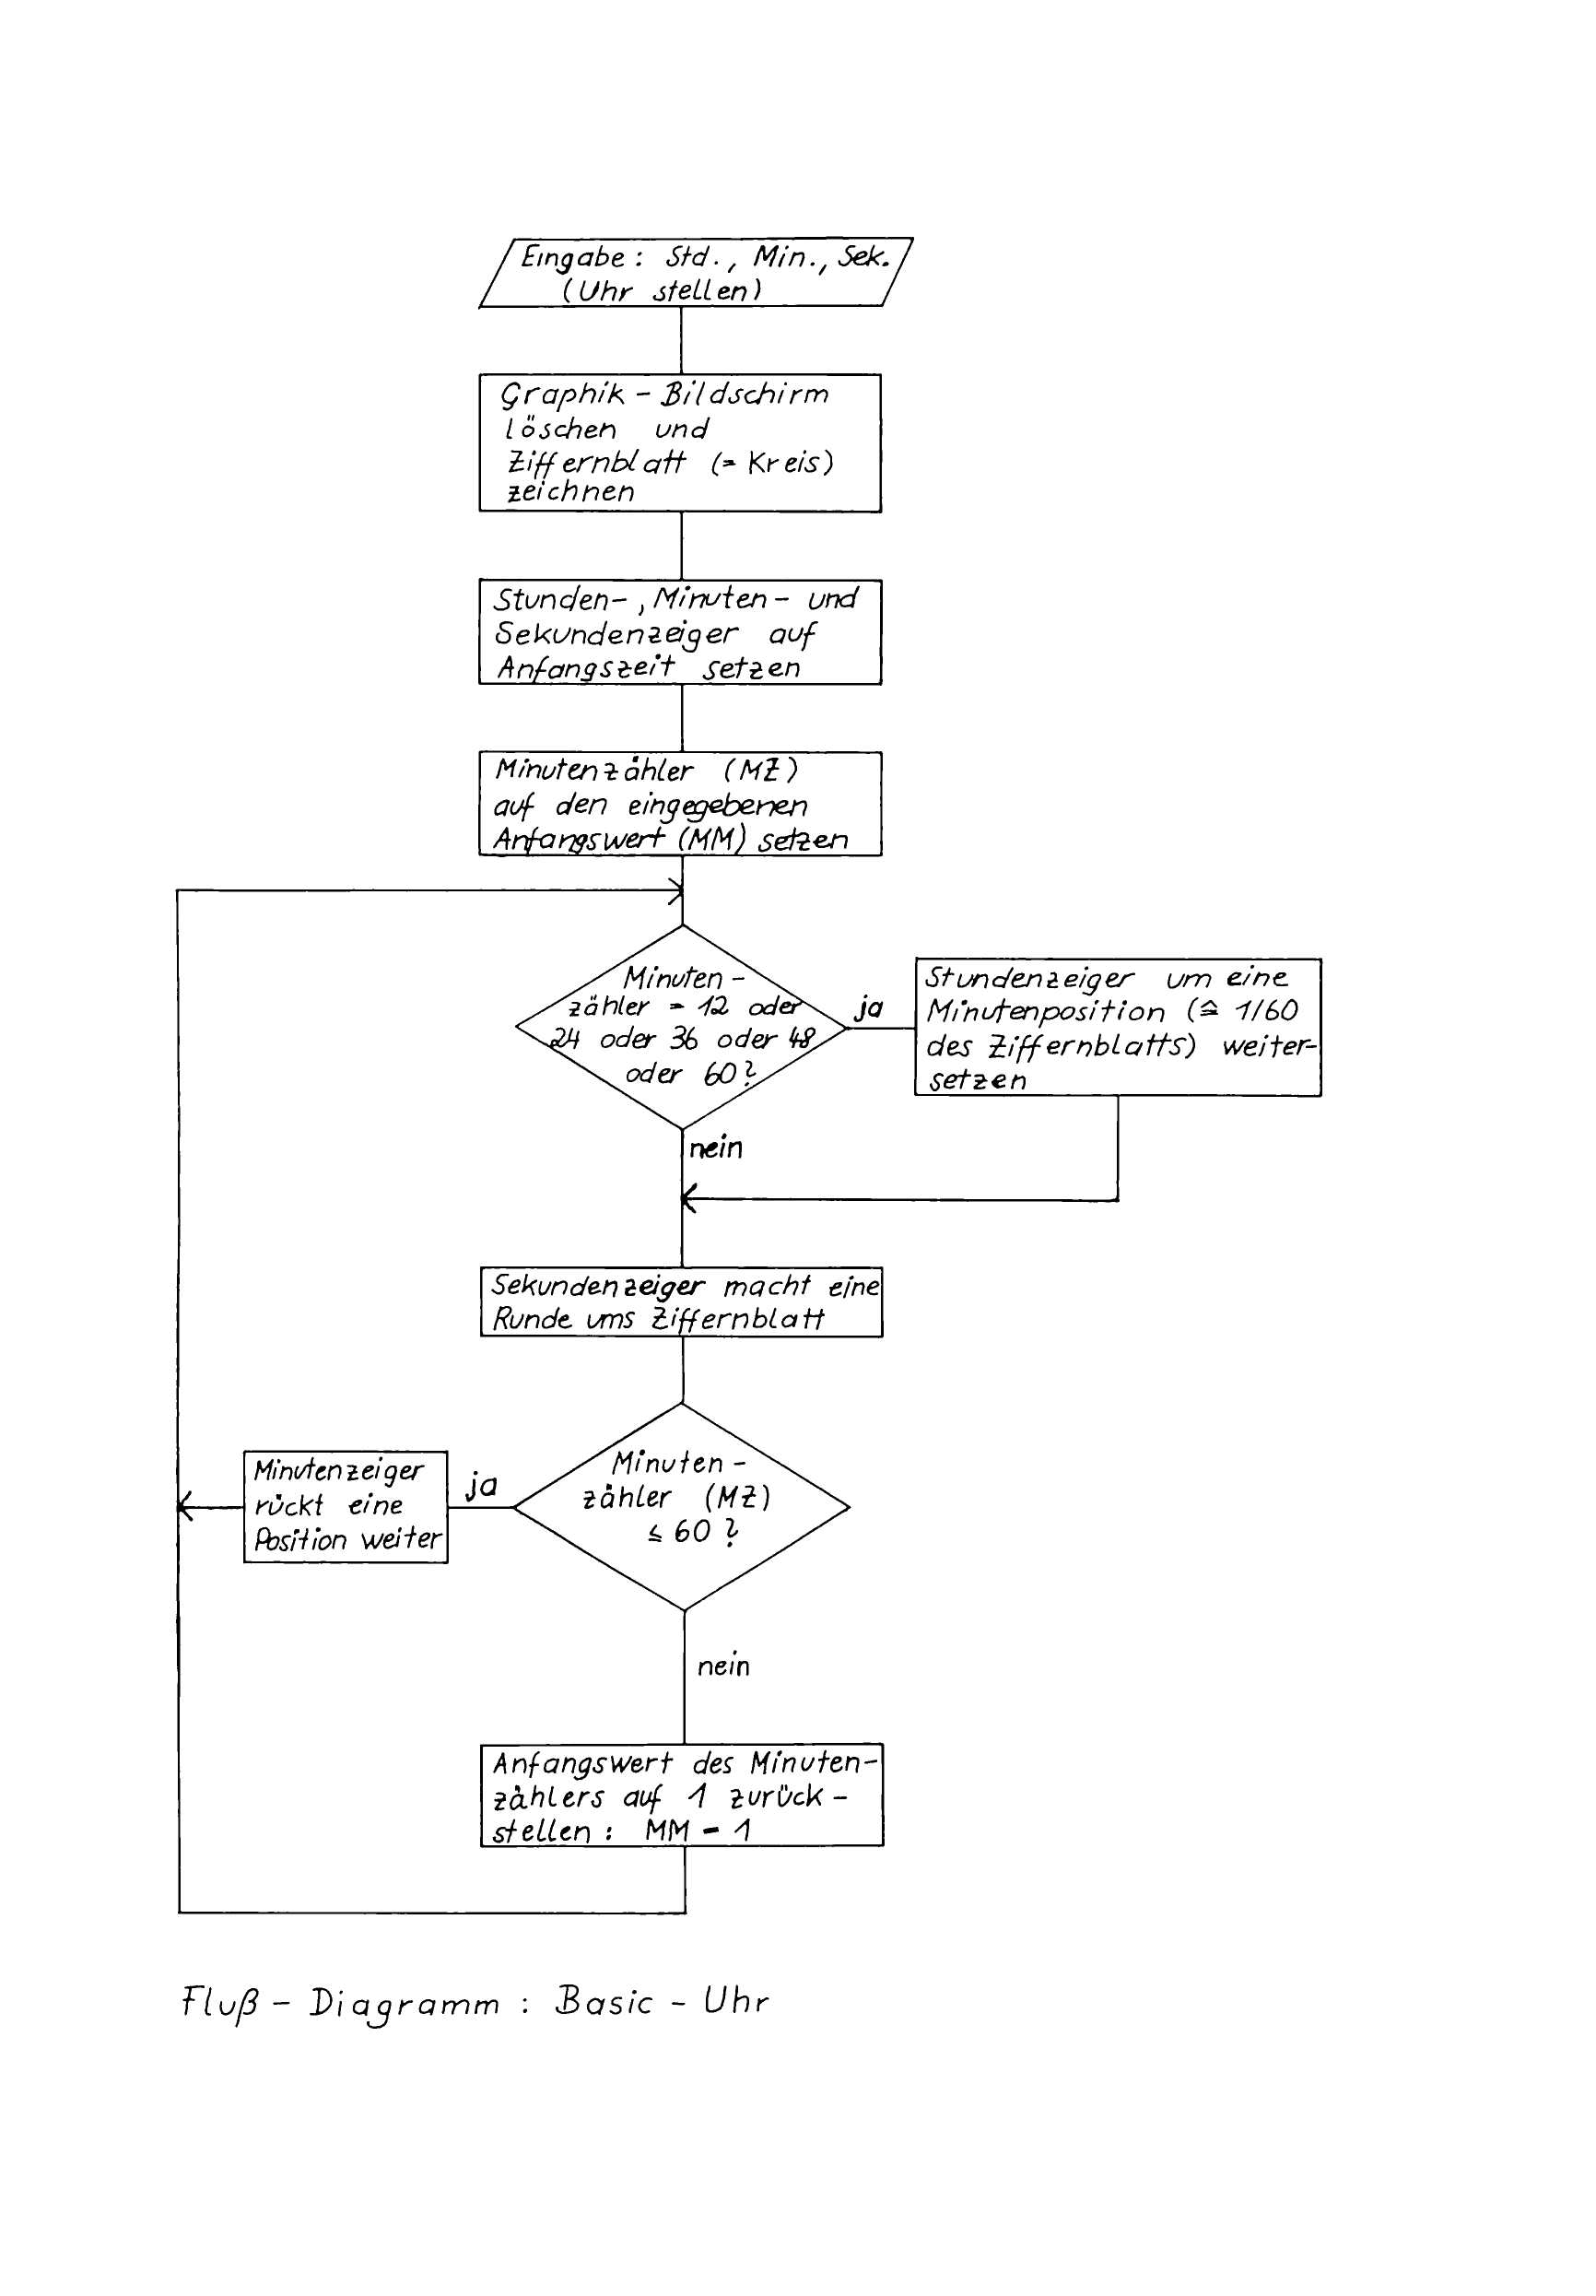 Eingabe: Std., Min., Sek.
(Uhr stellen)
Graphik-Bildschirm
löschen und
Ziffernblatt (= Kreis)
zeichnen
Stunden-, Minuten- und
Sekundenzeiger auf
Anfangszeit setzen
Minutenzähler (MZ)
auf den eingegebenen
Anfangswert (MM) setzen
Minuten-
zähler = 12 oder
24 oder 36 oder 48
oder 60?
ja
Stundenzeiger um eine
Minutenposition (≙ 1/60
des Ziffernblatts) weiter-
setzen
nein
Sekundenzeiger macht eine
Runde ums Ziffernblatt
Minuten-
zähler (MZ)
≤ 60?
ja
Minutenzeiger
rückt eine
Position weiter
nein
Anfangswert des Minuten-
zählers auf 1 zurück-
stellen: MM = 1
Fluß-Diagramm: Basic-Uhr